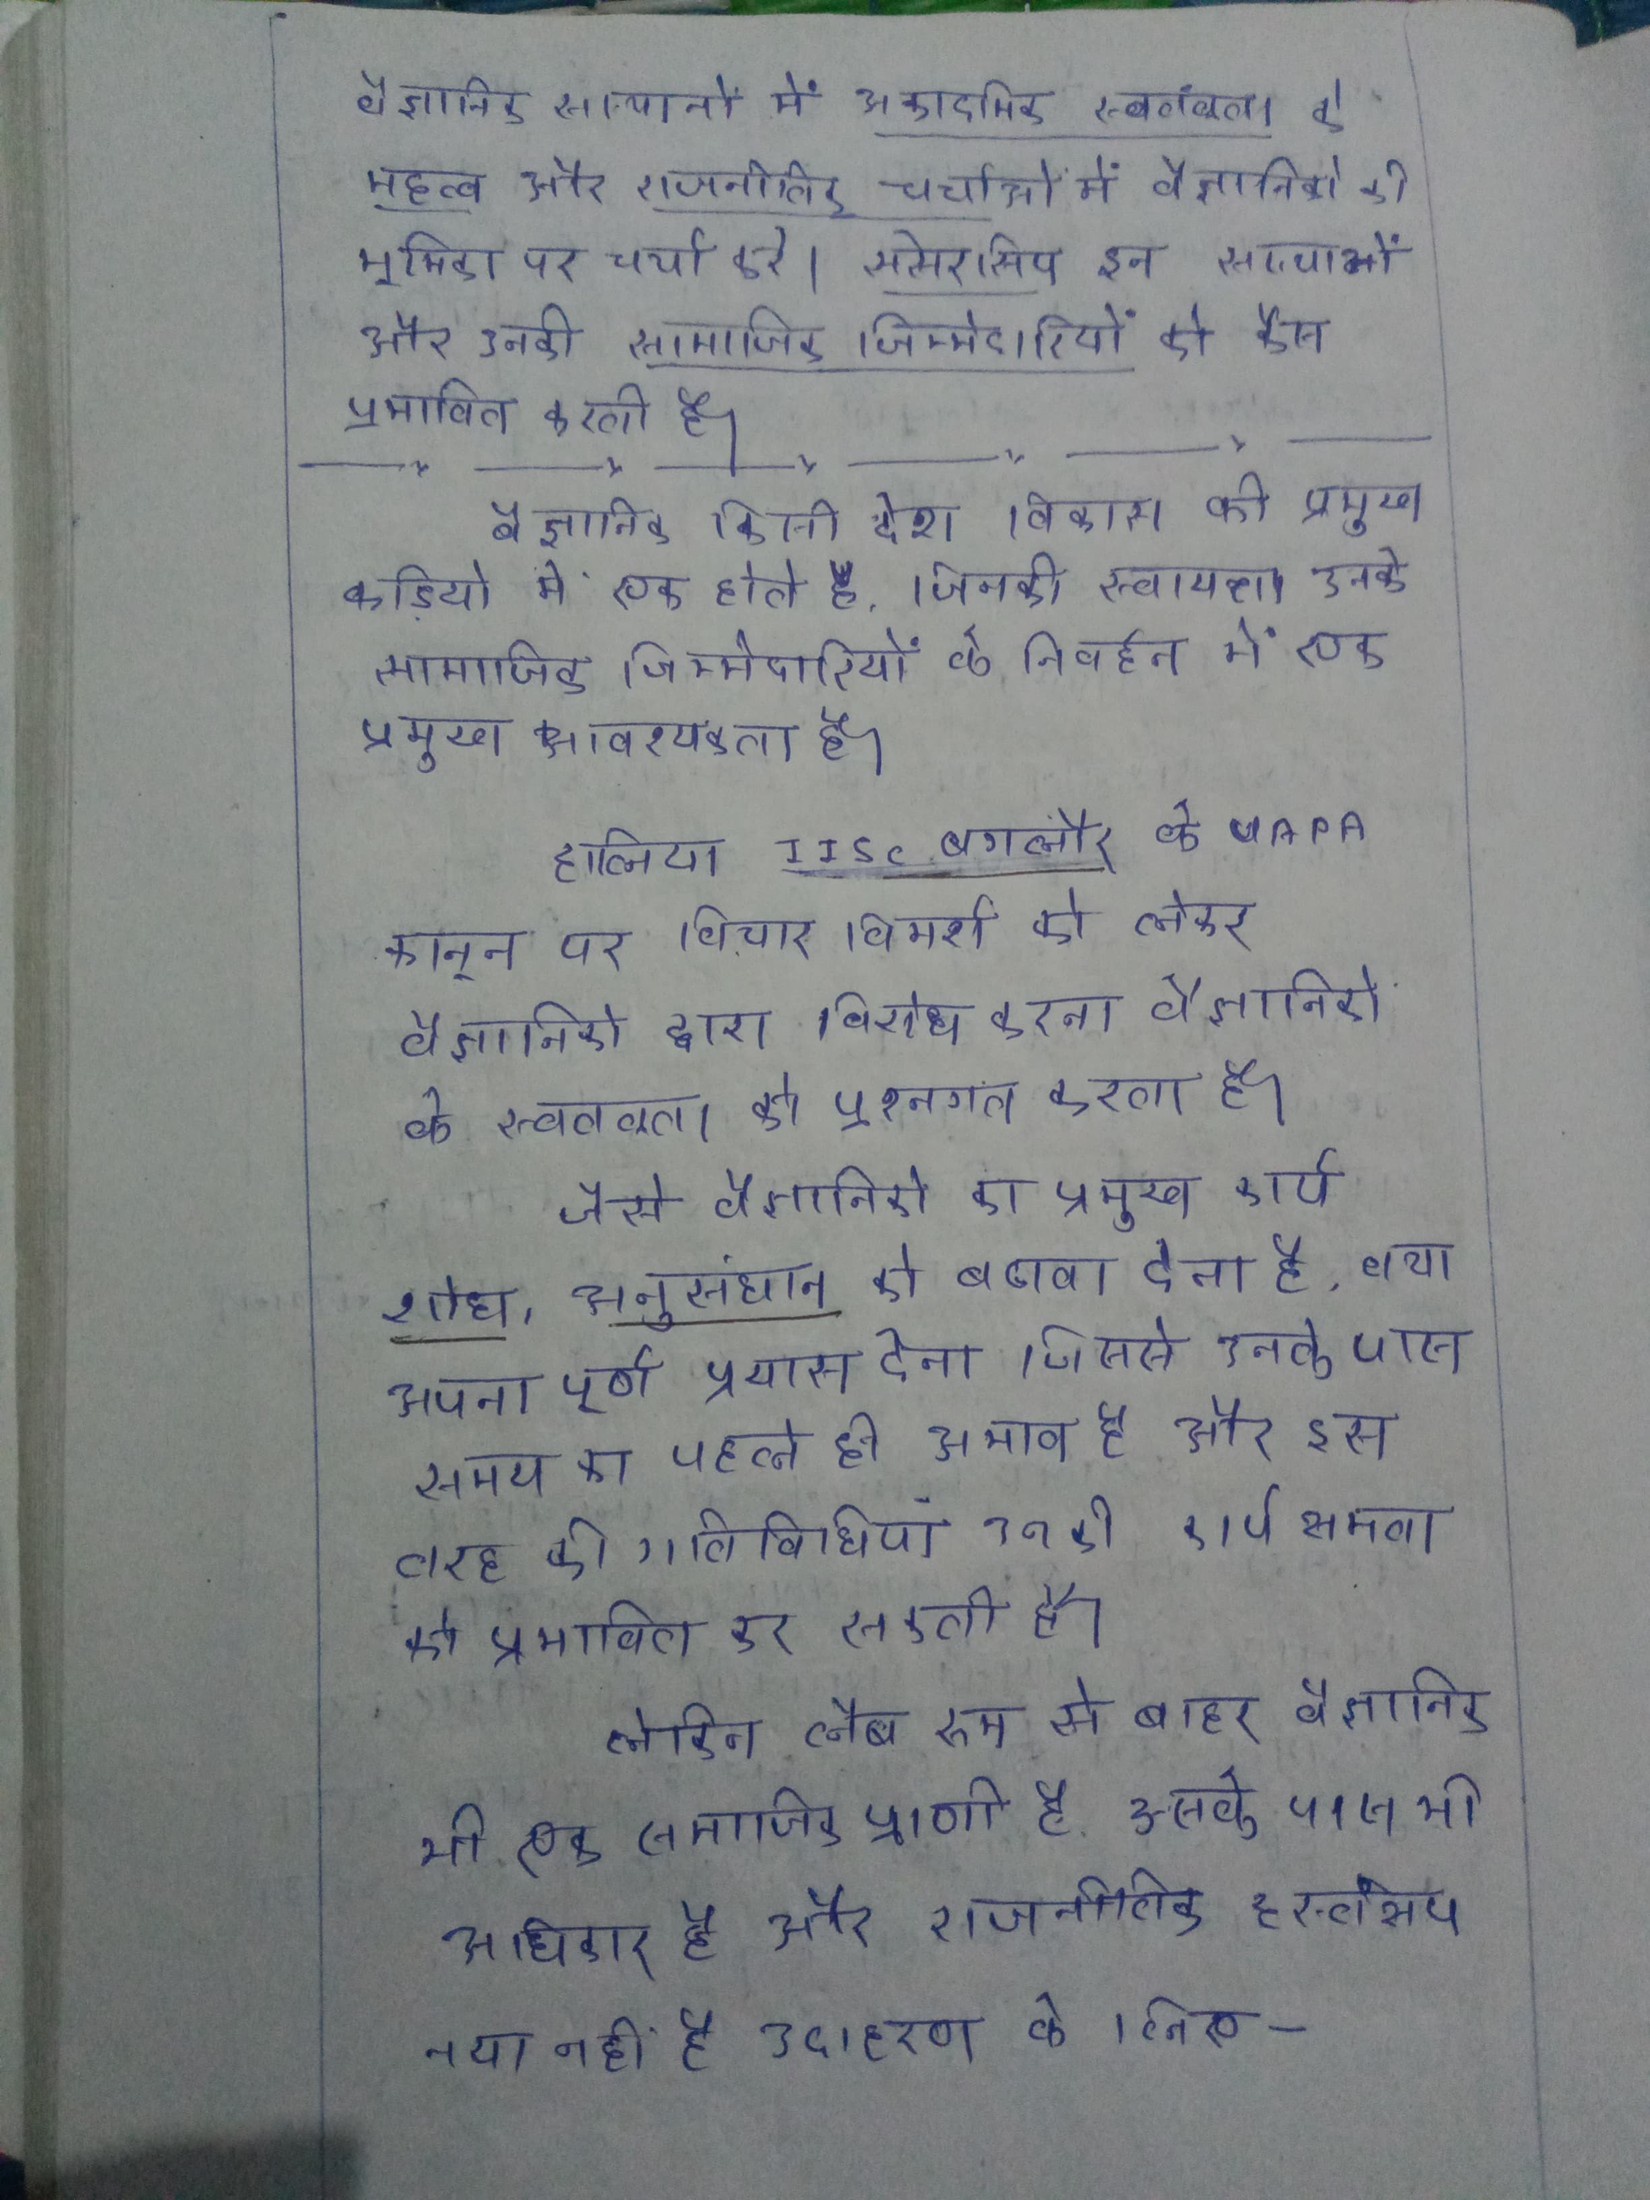 वैज्ञानिक संस्थानों में अकादमिक स्वतंत्रता के
महत्व और राजनीतिक चर्चाओं में वैज्ञानिको की
भूमिका पर चर्चा करे। सेसेरसिप इन संस्थाओं
और उनकी सामाजिक जिम्मेदारियों को कैस
प्रभावित करती है।
वैज्ञानिक किसी देश विकास की प्रमुख
कड़ियो में एक होते है, जिनकी स्वायत्ता उनके
सामाजिक जिम्मेदारियों के निवर्हन में एक
प्रमुख आवश्यकता है।
हालिया IISc बगलौर के UAPA
कानून पर विचार विमर्श को लेकर
वैज्ञानिको द्वारा विरोध करना वैज्ञानिको
के स्वतत्रता को प्रश्नगत करता है।
जैसे वैज्ञानिको का प्रमुख कार्य
शोध, अनुसंधान को बढावा देना है, तथा
अपना पूर्ण प्रयास देना जिससे उनके पास
समय का पहले ही अभाव है और इस
तरह की गतिविधियां उनकी कार्य क्षमता
को प्रभावित कर सकती है।
लेकिन लैब रूम से बाहर वैज्ञानिक
भी एक समाजिक प्राणी है, उसके पास भी
अधिकार है और राजनीतिक हस्तक्षेप
नया नहीं है उदाहरण के लिए –